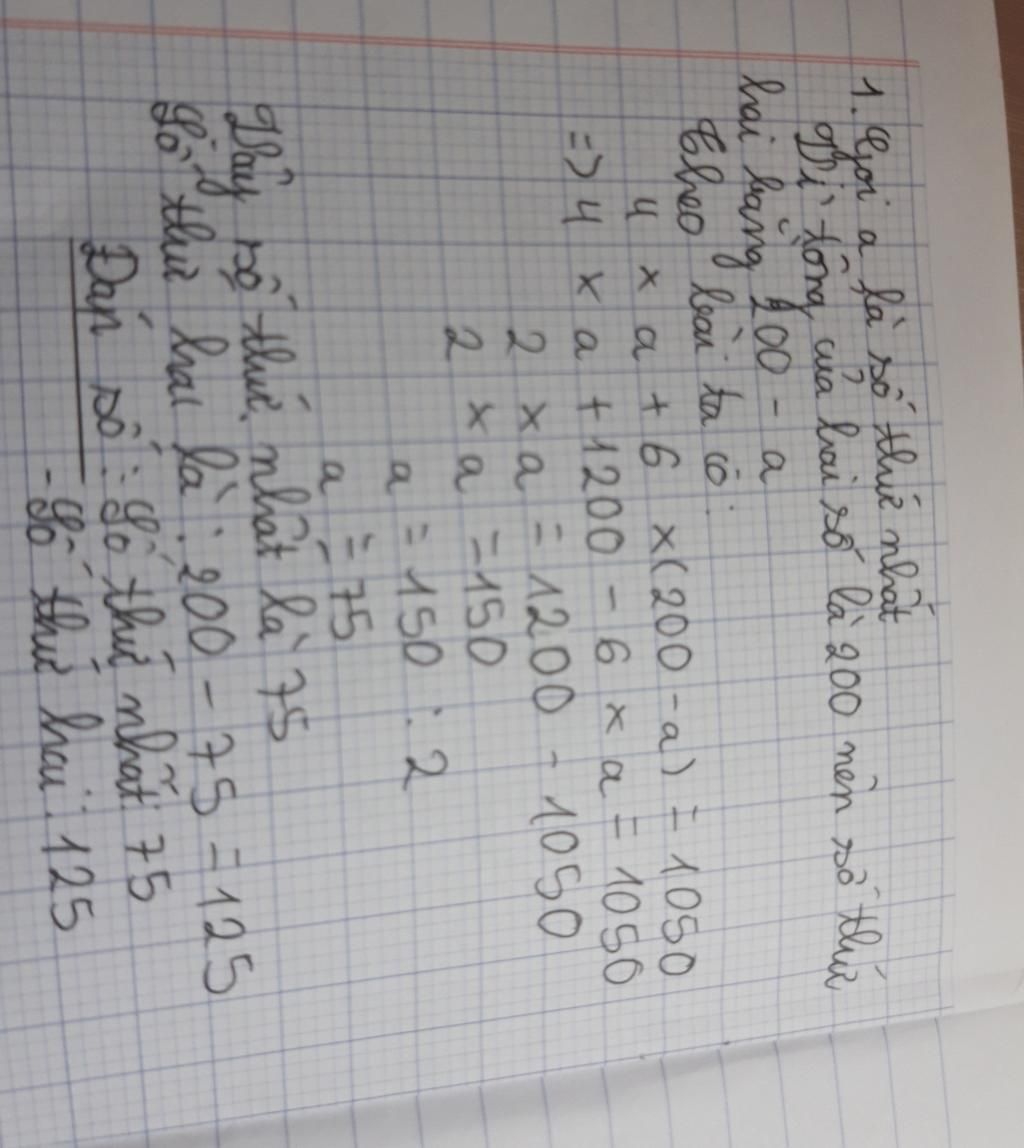 1. Gọi a là số thứ nhất
Vì tổng của hai số là 200 nên số thứ
hai bằng 200 - a
Theo bài ta có:
4 x a + 6 x (200 - a) = 1050
=> 4 x a + 1200 - 6 x a = 1050
2 x a = 1200 - 1050
2 x a = 150
a = 150 : 2
a = 75
Vậy số thứ nhất là 75
Số thứ hai là: 200 - 75 = 125
Đáp số: Số thứ nhất: 75
- Số thứ hai: 125